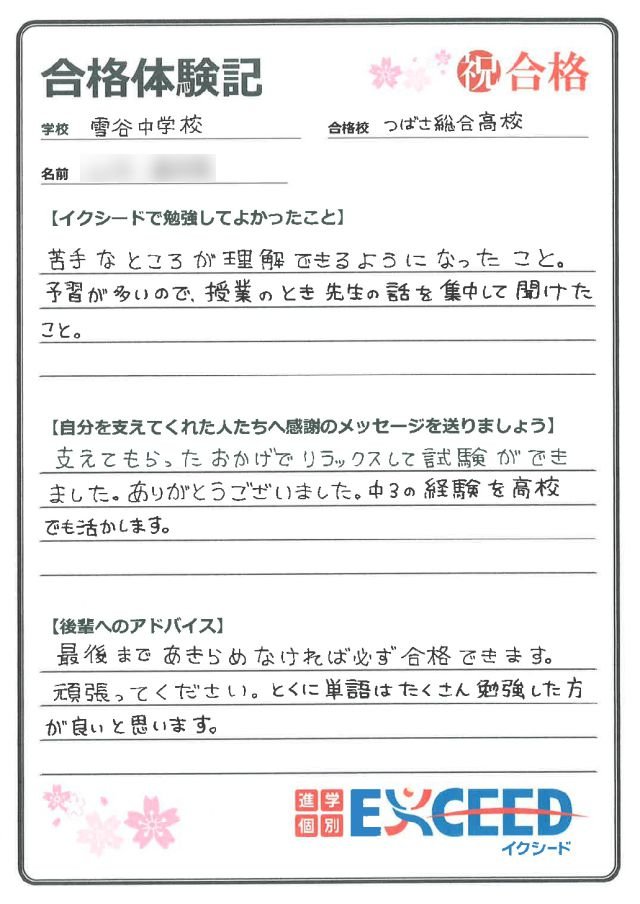 合格体験記
祝 合格
学校 雪谷中学校
合格校 つばさ総合高校
名前
【イクシードで勉強してよかったこと】
苦手なところが理解できるようになったこと。
予習が多いので、授業のとき先生の話を集中して聞けた
こと。
【自分を支えてくれた人たちへ感謝のメッセージを送りましょう】
支えてもらったおかげでリラックスして試験ができ
ました。ありがとうございました。中3の経験を高校
でも活かします。
【後輩へのアドバイス】
最後まであきらめなければ必ず合格できます。
頑張ってください。とくに単語はたくさん勉強した方
が良いと思います。
進学
個別
EXCEED
イクシード